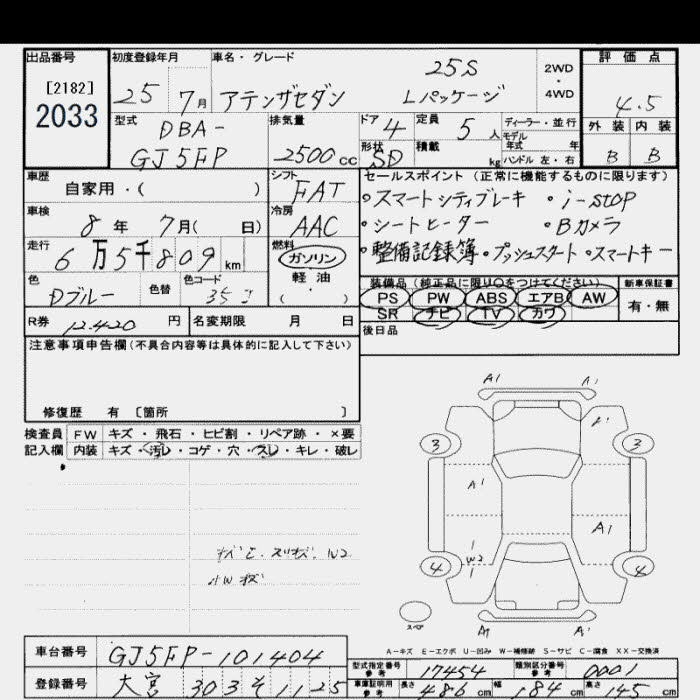 出品番号 初度登録年月 車名・グレード 評価点
[2182]
2033
25 7月 アテンザセダン 25S Lパッケージ 2WD・4WD 4.5
型式 DBA-GJ5FP 排気量 2500cc
ドア 4 定員 5人 ディーラー・並行
モデル年式 年
形状 SD 積載 kg ハンドル 左・右
外装 内装
B B
車歴 自家用・( ) シフト FAT
車検 8年 7月( 日) 冷房 AAC
走行 6万5千809km 燃料 ガソリン 軽油 ( )
色 Dブルー 色替 色コード
R券 12,420円 名変期限 月 日
セールスポイント(正常に機能するものに限ります)
・スマートシティブレーキ ・i-stop
・シートヒーター ・Bカメラ
・整備記録簿・プッシュスタート・スマートキー
装備品(純正品に限り○をつけてください) 新車保証書
PS PW ABS エアB AW 有・無
SR ナビ TV カワ
後日品
注意事項申告欄(不具合内容等は具体的に記入して下さい)
修復歴 有 〔箇所 〕
検査員 FW キズ・飛石・ヒビ割・リペア跡・×要
記入欄 内装 キズ・汚レ・コゲ・穴・スレ・キレ・破レ
A1 A1
3 3
A1
A1
W2
4 4
スペア
A1 A1
A-キズ E-エクボ U-凹み W-補修跡 S-サビ C-腐食 XX-交換済
車台番号 GJ5FP-101404
登録番号 大宮 303 そ 1125
型式指定番号 参考 17454 類別区分番号 参考 0001
車庫証明用 参考 長さ 486cm 幅 184cm 高さ 145cm